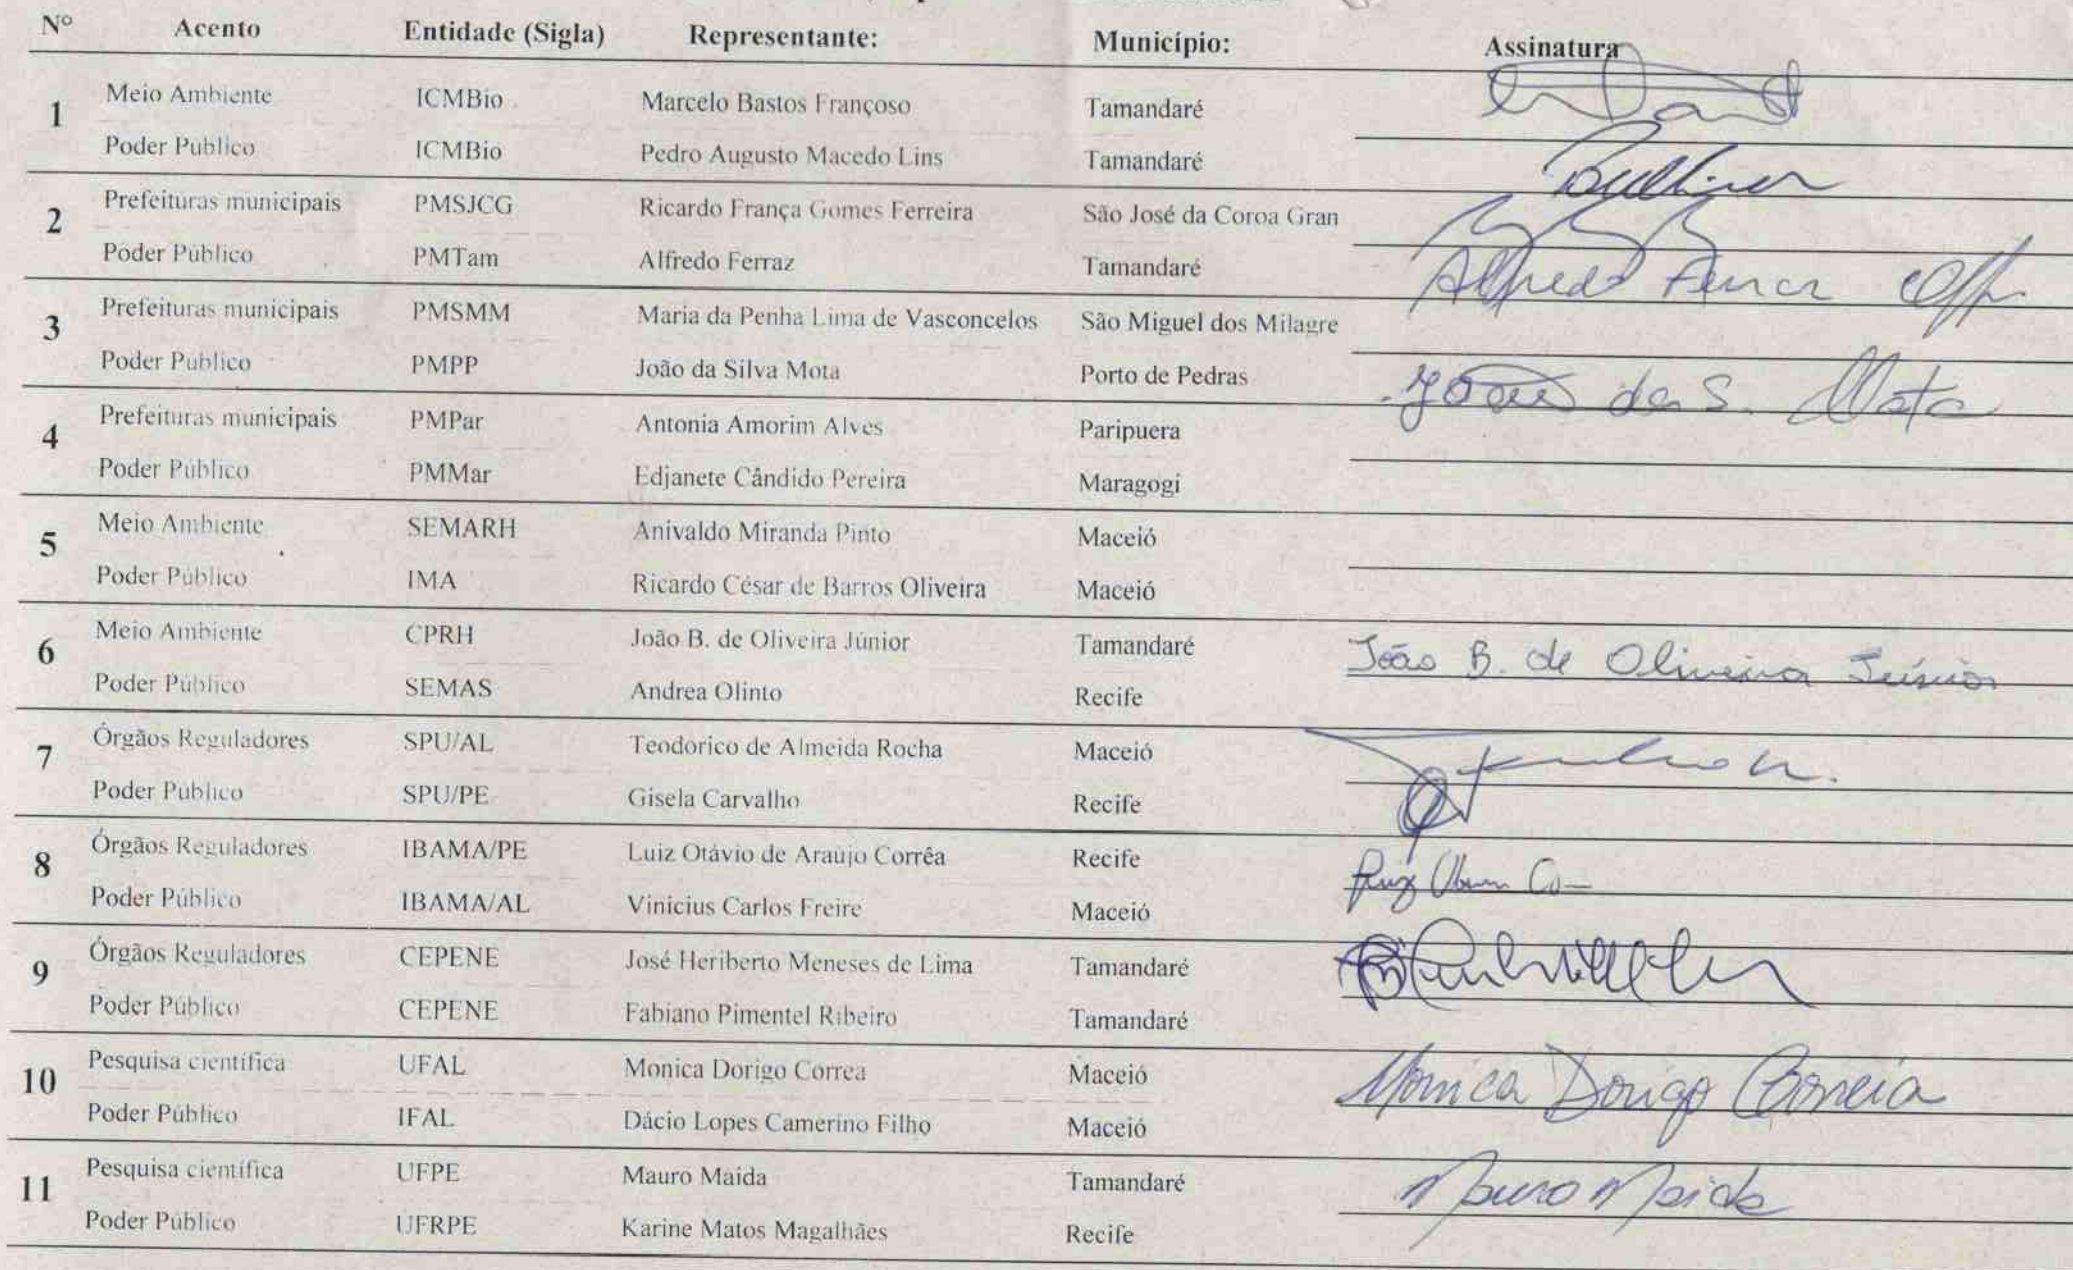 Nº Acento Entidade (Sigla) Representante: Município: Assinatura
1 Meio Ambiente ICMBio Marcelo Bastos Françoso Tamandaré
Poder Público ICMBio Pedro Augusto Macedo Lins Tamandaré
2 Prefeituras municipais PMSJCG Ricardo França Gomes Ferreira São José da Coroa Gran
Poder Público PMTam Alfredo Ferraz Tamandaré Alfredo Ferraz
3 Prefeituras municipais PMSMM Maria da Penha Lima de Vasconcelos São Miguel dos Milagre
Poder Público PMPP João da Silva Mota Porto de Pedras João da S. Mota
4 Prefeituras municipais PMPar Antonia Amorim Alves Paripuera
Poder Público PMMar Edjanete Cândido Pereira Maragogi
5 Meio Ambiente SEMARH Anivaldo Miranda Pinto Maceió
Poder Público IMA Ricardo César de Barros Oliveira Maceió
6 Meio Ambiente CPRH João B. de Oliveira Júnior Tamandaré João B. de Oliveira Júnior
Poder Público SEMAS Andrea Olinto Recife
7 Órgãos Reguladores SPU/AL Teodorico de Almeida Rocha Maceió
Poder Público SPU/PE Gisela Carvalho Recife
8 Órgãos Reguladores IBAMA/PE Luiz Otávio de Araújo Corrêa Recife
Poder Público IBAMA/AL Vinicius Carlos Freire Maceió
9 Órgãos Reguladores CEPENE José Heriberto Meneses de Lima Tamandaré
Poder Público CEPENE Fabiano Pimentel Ribeiro Tamandaré
10 Pesquisa científica UFAL Monica Dorigo Correa Maceió Monica Dorigo Correia
Poder Público IFAL Dácio Lopes Camerino Filho Maceió
11 Pesquisa científica UFPE Mauro Maida Tamandaré Mauro Maida
Poder Público UFRPE Karine Matos Magalhães Recife